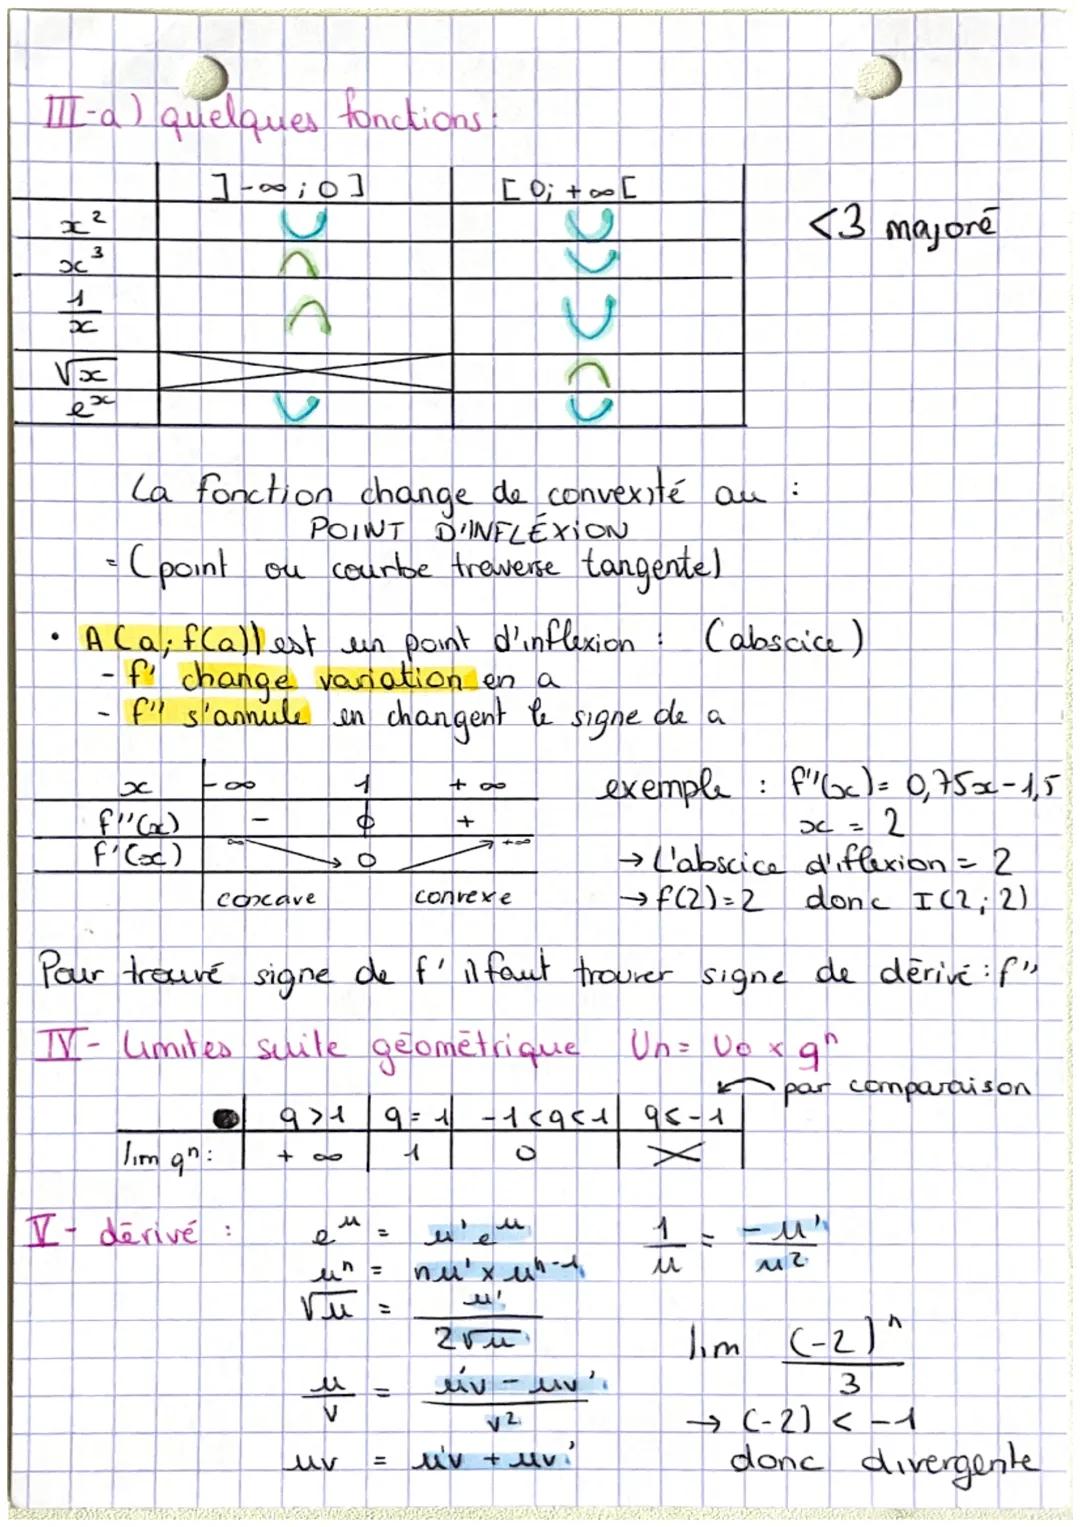 III-a) quelques fonctions:
]-∞;0] [0;+∞[
x²
<3 majoré
x³
1/x
√x
eˣ
La fonction change de convexité au :
POINT D'INFLÉXION
= (point ou courbe traverse tangente)
• A(a; f(a)) est un point d'inflexion : (abscice)
- f' change variation en a
- f'' s'annule en changent le signe de a
x -∞ 1 +∞
f''(x) - 0 +
f'(x) ∞ 0 +∞
concave convexe
exemple : f''(x) = 0,75x-1,5
x = 2
→ L'abscice d'iflexion = 2
→ f(2)=2 donc I(2;2)
Pour trouvé signe de f' il faut trouver signe de dérivé : f''
IV- Limites suite géométrique Un = U0 x qⁿ
par comparaison
q>1 q=1 -1<q<1 q<-1
lim qⁿ: +∞ 1 0 ×
V- dérivé :
eᵘ = u'eᵘ
1/u = -u'/u²
uⁿ = nu' x uⁿ⁻¹
√u = u'/2√u
u/v = u'v - uv'/v²
uv = u'v + uv'
lim (-2)ⁿ/3
→ (-2) < -1
donc divergente